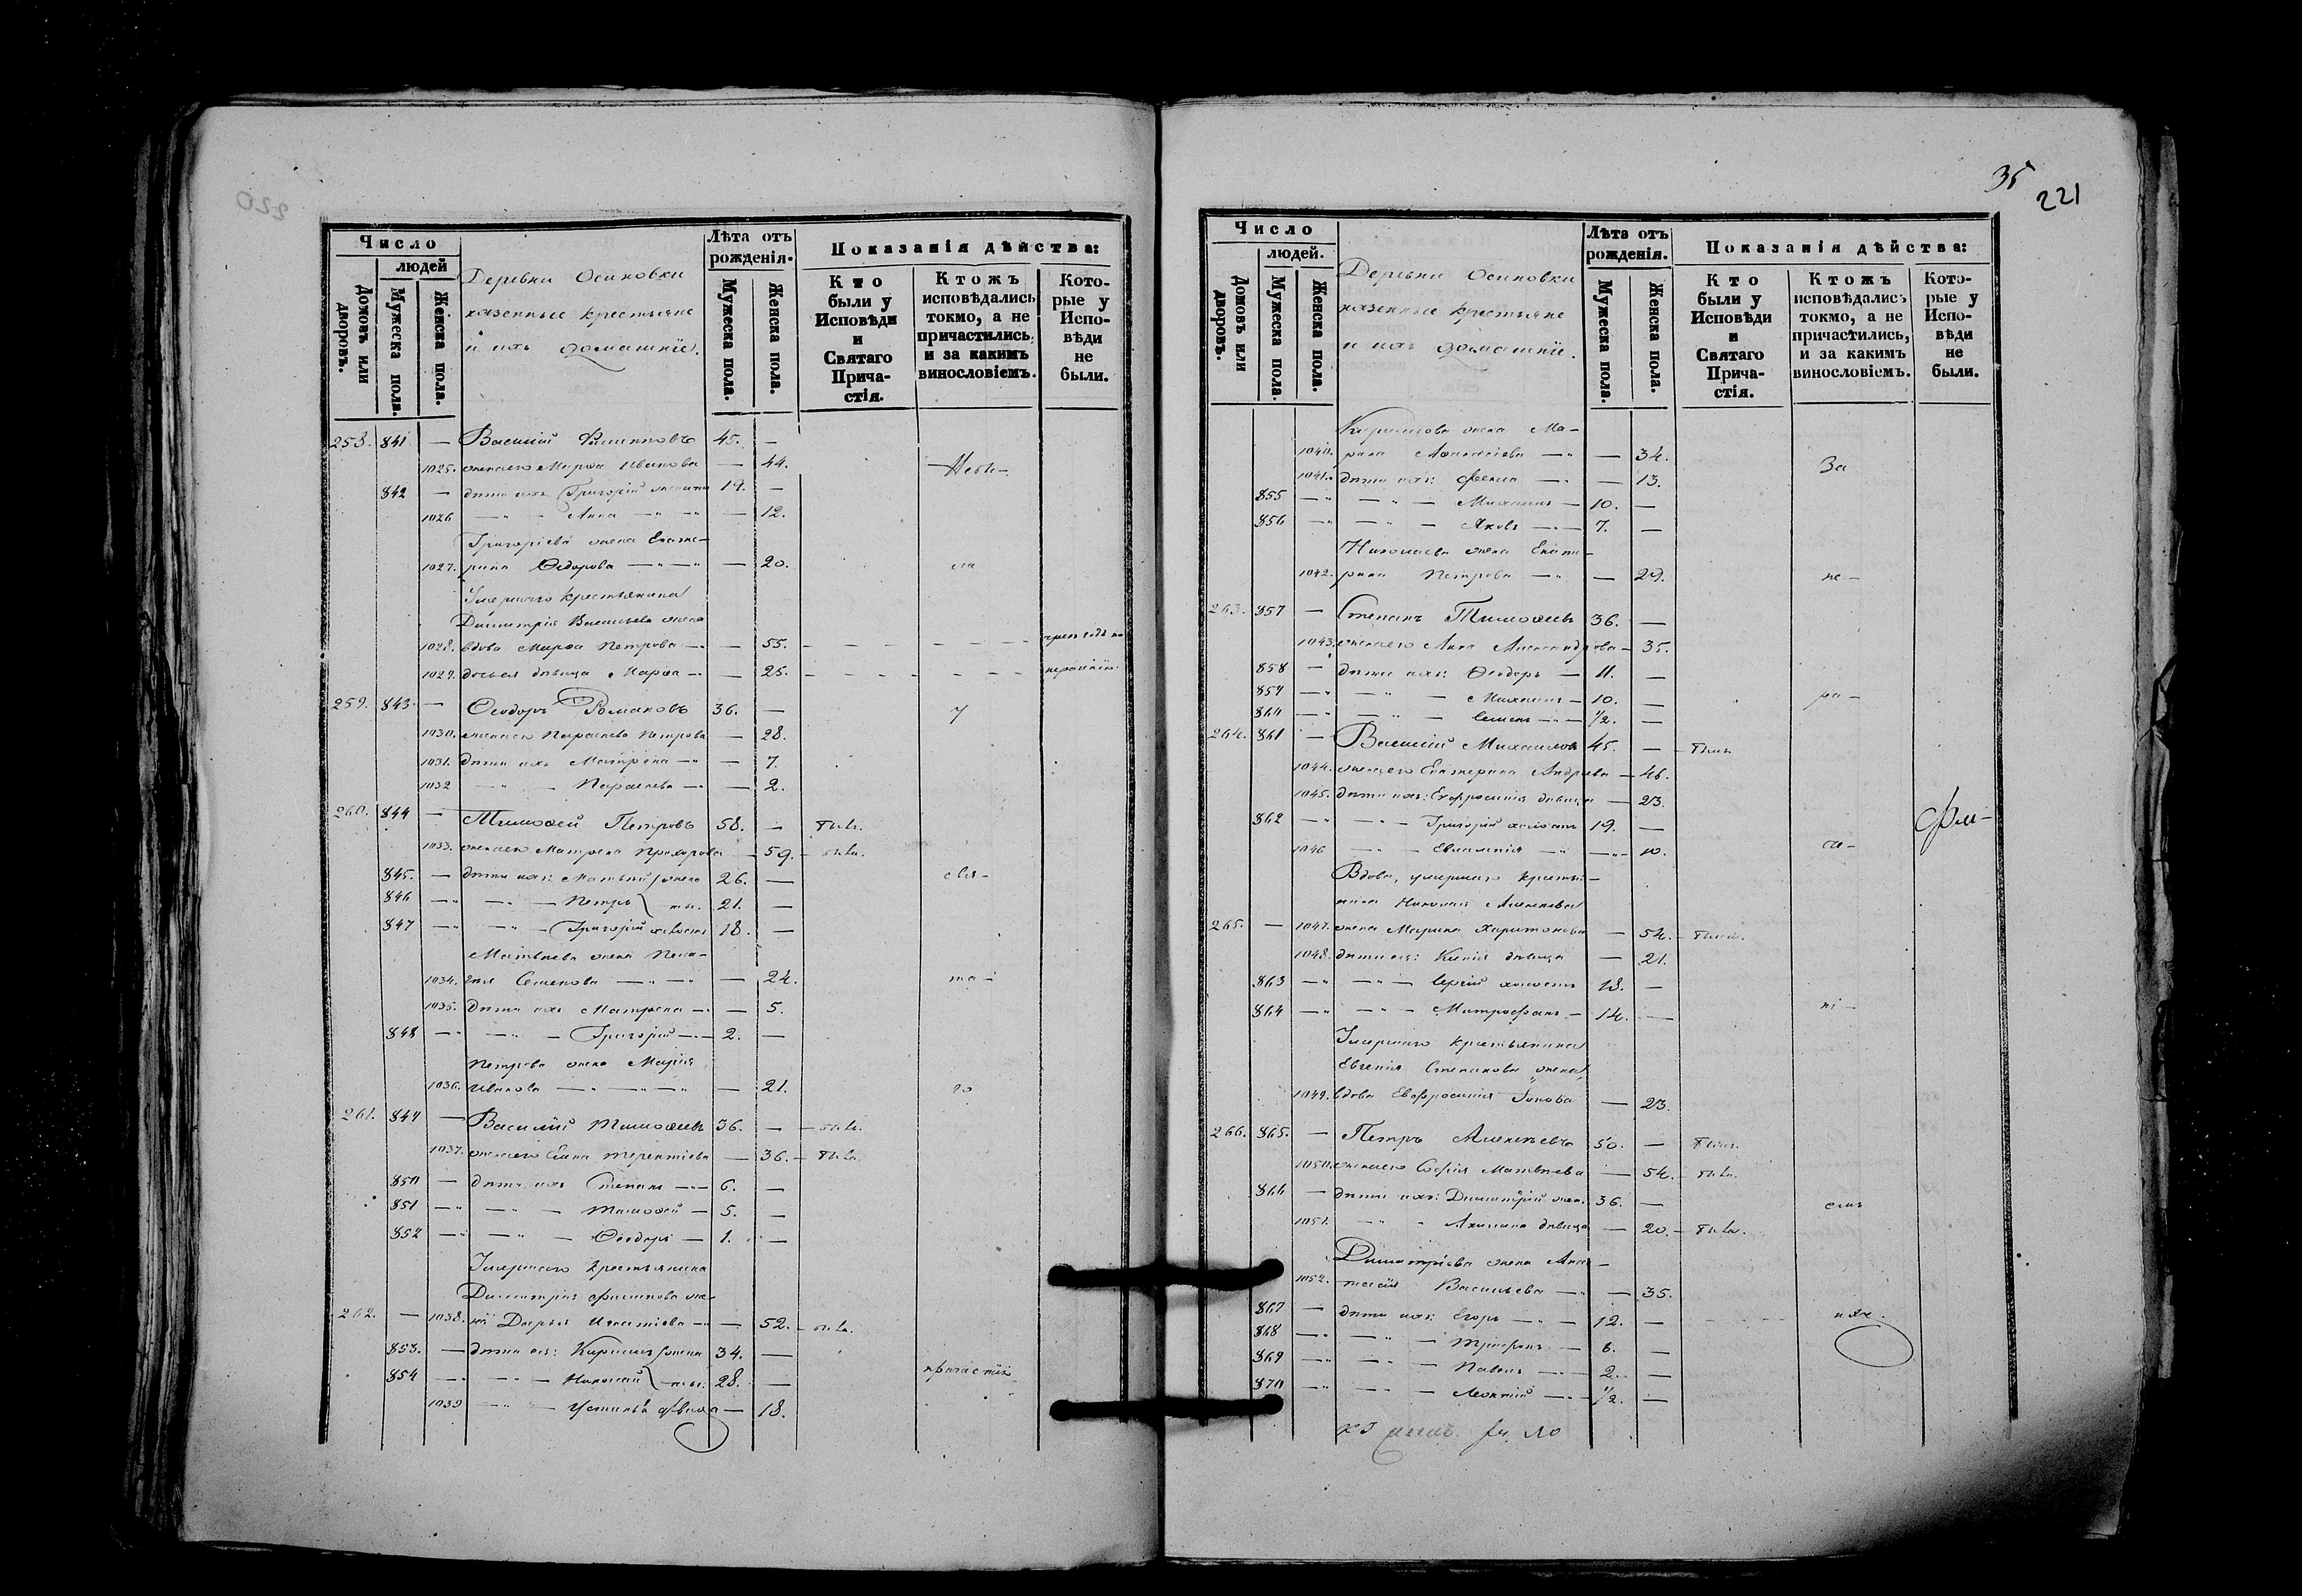 35
221
Число
людей
Домовъ или дворовъ.
Мужеска пола.
Женска пола.
Деревни Осиновки
казенные крестьяне
и ихъ домашніе.
Лѣта отъ рожденія.
Мужеска пола.
Женска пола.
Показанія дѣйства:
Кто были у Исповѣди и Святаго Причастія.
Ктожъ исповѣдались токмо, а не причастились, и за какимъ винословіемъ.
Которые у Исповѣди не были.
258. 841 — Василій Филиповъ 45. —
1025. жена его Марѳа Иванова — 44. Небы-
842 — дѣти ихъ Григорій женатъ 19. —
1026 Анна — 12.
Григоріева жена Екате-
1027. рина Ѳедорова — 20. ли
Умершаго крестьянина
Димитрія Васильева жена
1028. вдова Марѳа Петрова — 55.
1029. дочь ея дѣвица Марѳа — 25.
259. 843 — Ѳеодоръ Романовъ 36. — у
1030. жена его Параскева Петрова — 28.
1031. дѣти ихъ Матрена — 7.
1032 Параскева — 2.
260. 844 — Тимоѳей Петровъ 58. — были.
1033. жена его Матрена Прохорова — 59. были.
845. — дѣти ихъ: Матвѣй жена 26. — свя-
846 Петръ ты. 21. —
847 Григорій холостъ 18. —
Матвѣева жена Пела-
1034. гея Семенова — 24. та-
1035. дѣти ихъ Матрена — 5.
848 Григорій — 2. —
Петрова жена Марія
1036. Иванова — 21. го
261. 849 — Василій Тимоѳеевъ 36. — были.
1037. жена его Елена Терентіева — 36. были.
850 — дѣти ихъ Степанъ — 6. —
851 Тимоѳей — 5. —
852 Ѳеодоръ — 1. —
Умершаго крестьянина
Димитрія Филипова же-
262. — 1038. на Дарья Игнатіева — 52. были.
853. — дѣти ея: Кирилъ жена 34. —
854 Николай ты. 28. — причастія
1039 Устинья дѣвица — 18.
Число
людей.
Домовъ или дворовъ.
Мужеска пола.
Женска пола.
Деревни Осиновки
казенные крестьяне
и ихъ домашніе.
Лѣта отъ рожденія.
Мужеска пола.
Женска пола.
Показанія дѣйства:
Кто были у Исповѣди и Святаго Причастія.
Ктожъ исповѣдались токмо, а не причастились, и за какимъ винословіемъ.
Которые у Исповѣди не были.
Кирилова жена Ма-
1040. рина Аѳанасіева — 34. За
1041. дѣти ихъ: Фекла — 13.
855 Михаилъ — 10. —
856 Яковъ — 7. —
Николаева жена Екате-
1042. рина Петрова — 29. не-
263. 857 — Степанъ Тимоѳеевъ 36. —
1043. жена его Анна Александрова — 35.
858 — дѣти ихъ: Ѳеодоръ — 11. —
859 Михаилъ — 10. — ра-
860 Семенъ — 1/2. —
264. 861 — Василій Михаиловъ 45. — были
1044. жена его Екатерина Андреева — 46.
1045. дѣти ихъ: Евфросинія дѣвица — 23.
862 Григорій холостъ 19. —
1046 Евлампія — 10. — 
Вдова, умершаго крестья-
нина Николая Алексѣева
265. — 1047. жена Марина Харитонова — 54. были.
1048. дѣти ея: Ксенія дѣвица — 21.
863 Сергій холостъ 18. —
864 Митрофанъ — 14. — ні-
Умершаго крестьянина
Евгенія Степанова жена
1049. вдова Евфросинія — 23.
266. 865. — Петръ Алексѣевъ 50. — были.
1050. жена его Софія Матвѣева — 54. были.
866 — дѣти ихъ: Димитрій жен. 36. —
1051. Акилина дѣвица — 20. были.
Димитріева жена Анас-
1052. тасія Васильева — 35.
867 — дѣти ихъ: Егоръ — 12. —
868 Трифонъ — 6. —
869 Павелъ — 2. —
870 Леонтій — 1/2. —